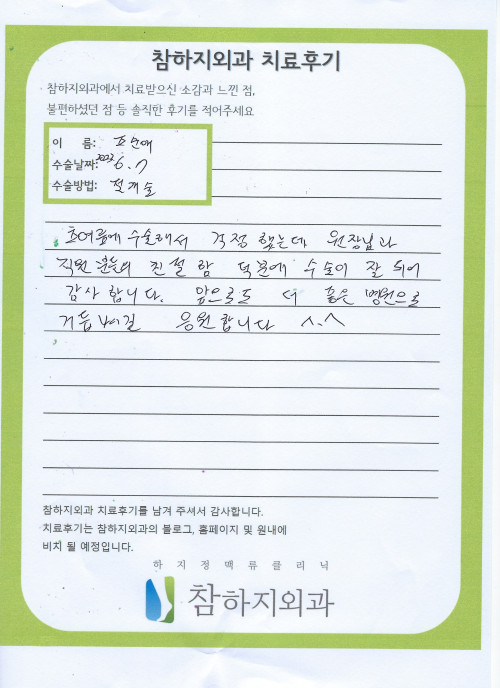 참하지외과 치료후기
참하지외과에서 치료받으신 소감과 느낀 점,
불편하셨던 점 등 솔직한 후기를 적어주세요
이 름: 표순애
수술날짜: 2022 6. 7
수술방법: 절개술
초여름에 수술해서 걱정했는데 원장님과
직원분들의 친절함 덕분에 수술이 잘 되어
감사합니다. 앞으로도 더 좋은 병원으로
거듭나길 응원합니다 ^.^
참하지외과 치료후기를 남겨 주셔서 감사합니다.
치료후기는 참하지외과의 블로그, 홈페이지 및 원내에
비치 될 예정입니다.
하지정맥류클리닉
참하지외과